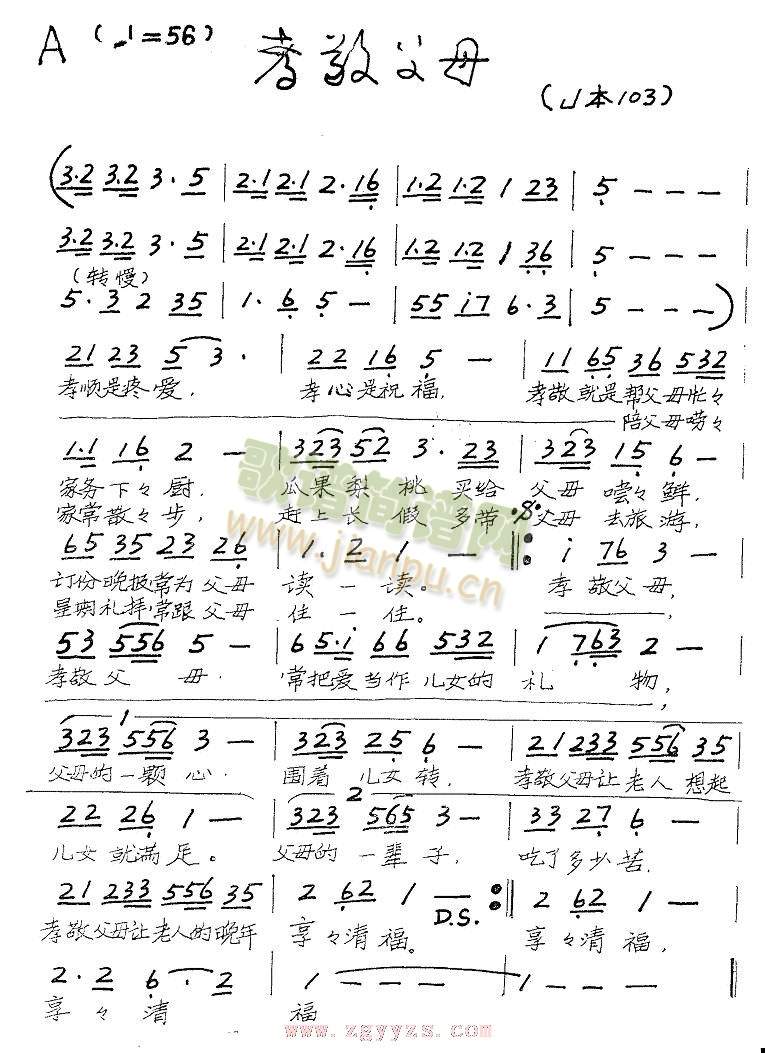 A (♩=56) 孝敬父母
(山本103)
(3·2 3·2 3·5 | 2·1 2·1 2·16 | 1·2 1·2 1 23 | 5 - - - |
3·2 3·2 3·5 | 2·1 2·1 2·16 | 1·2 1·2 1 36 | 5 - - - |
(转慢)
5·3 2 35 | 1·6 5 - | 55 i7 6·3 | 5 - - -) |
21 23 5 3· | 22 16 5 - | 11 65 36 532 |
孝顺是疼爱, 孝心是祝福, 孝敬就是帮父母忙々
陪父母唠々
1·1 16 2 - | 323 52 3·23 | 323 15 6 - |
家务下々厨, 瓜果梨桃买给父母嚐々鲜,
家常散々步, 赶上长假多带父母去旅游,
65 35 23 26 | 1·2 1 - :‖: i 76 3 - |
订份晚报常为父母读一读。 孝敬父母,
星期礼拜常跟父母住一住。
53 556 5 - | 6 5·i 66 532 | 1 763 2 - |
孝敬父母, 常把爱当作儿女的礼物,
1
323 556 3 - | 323 25 6 - | 21 233 556 35 |
父母的一颗心· 围着儿女转, 孝敬父母让老人想起
2
22 26 1 - | 323 565 3 - | 33 27 6 - |
儿女就满足。 父母的一辈子, 吃了多少苦,
21 233 556 35 | 2 62 1 — :‖ 2 62 1 - |
D.S.
孝敬父母让老人的晚年享々清福。 享々清福,
2·2 6·2 | 1 - - - | 1 - - - ‖
享々清福
歌谱简谱网
www.jianpu.cn
www.zgyyzs.com